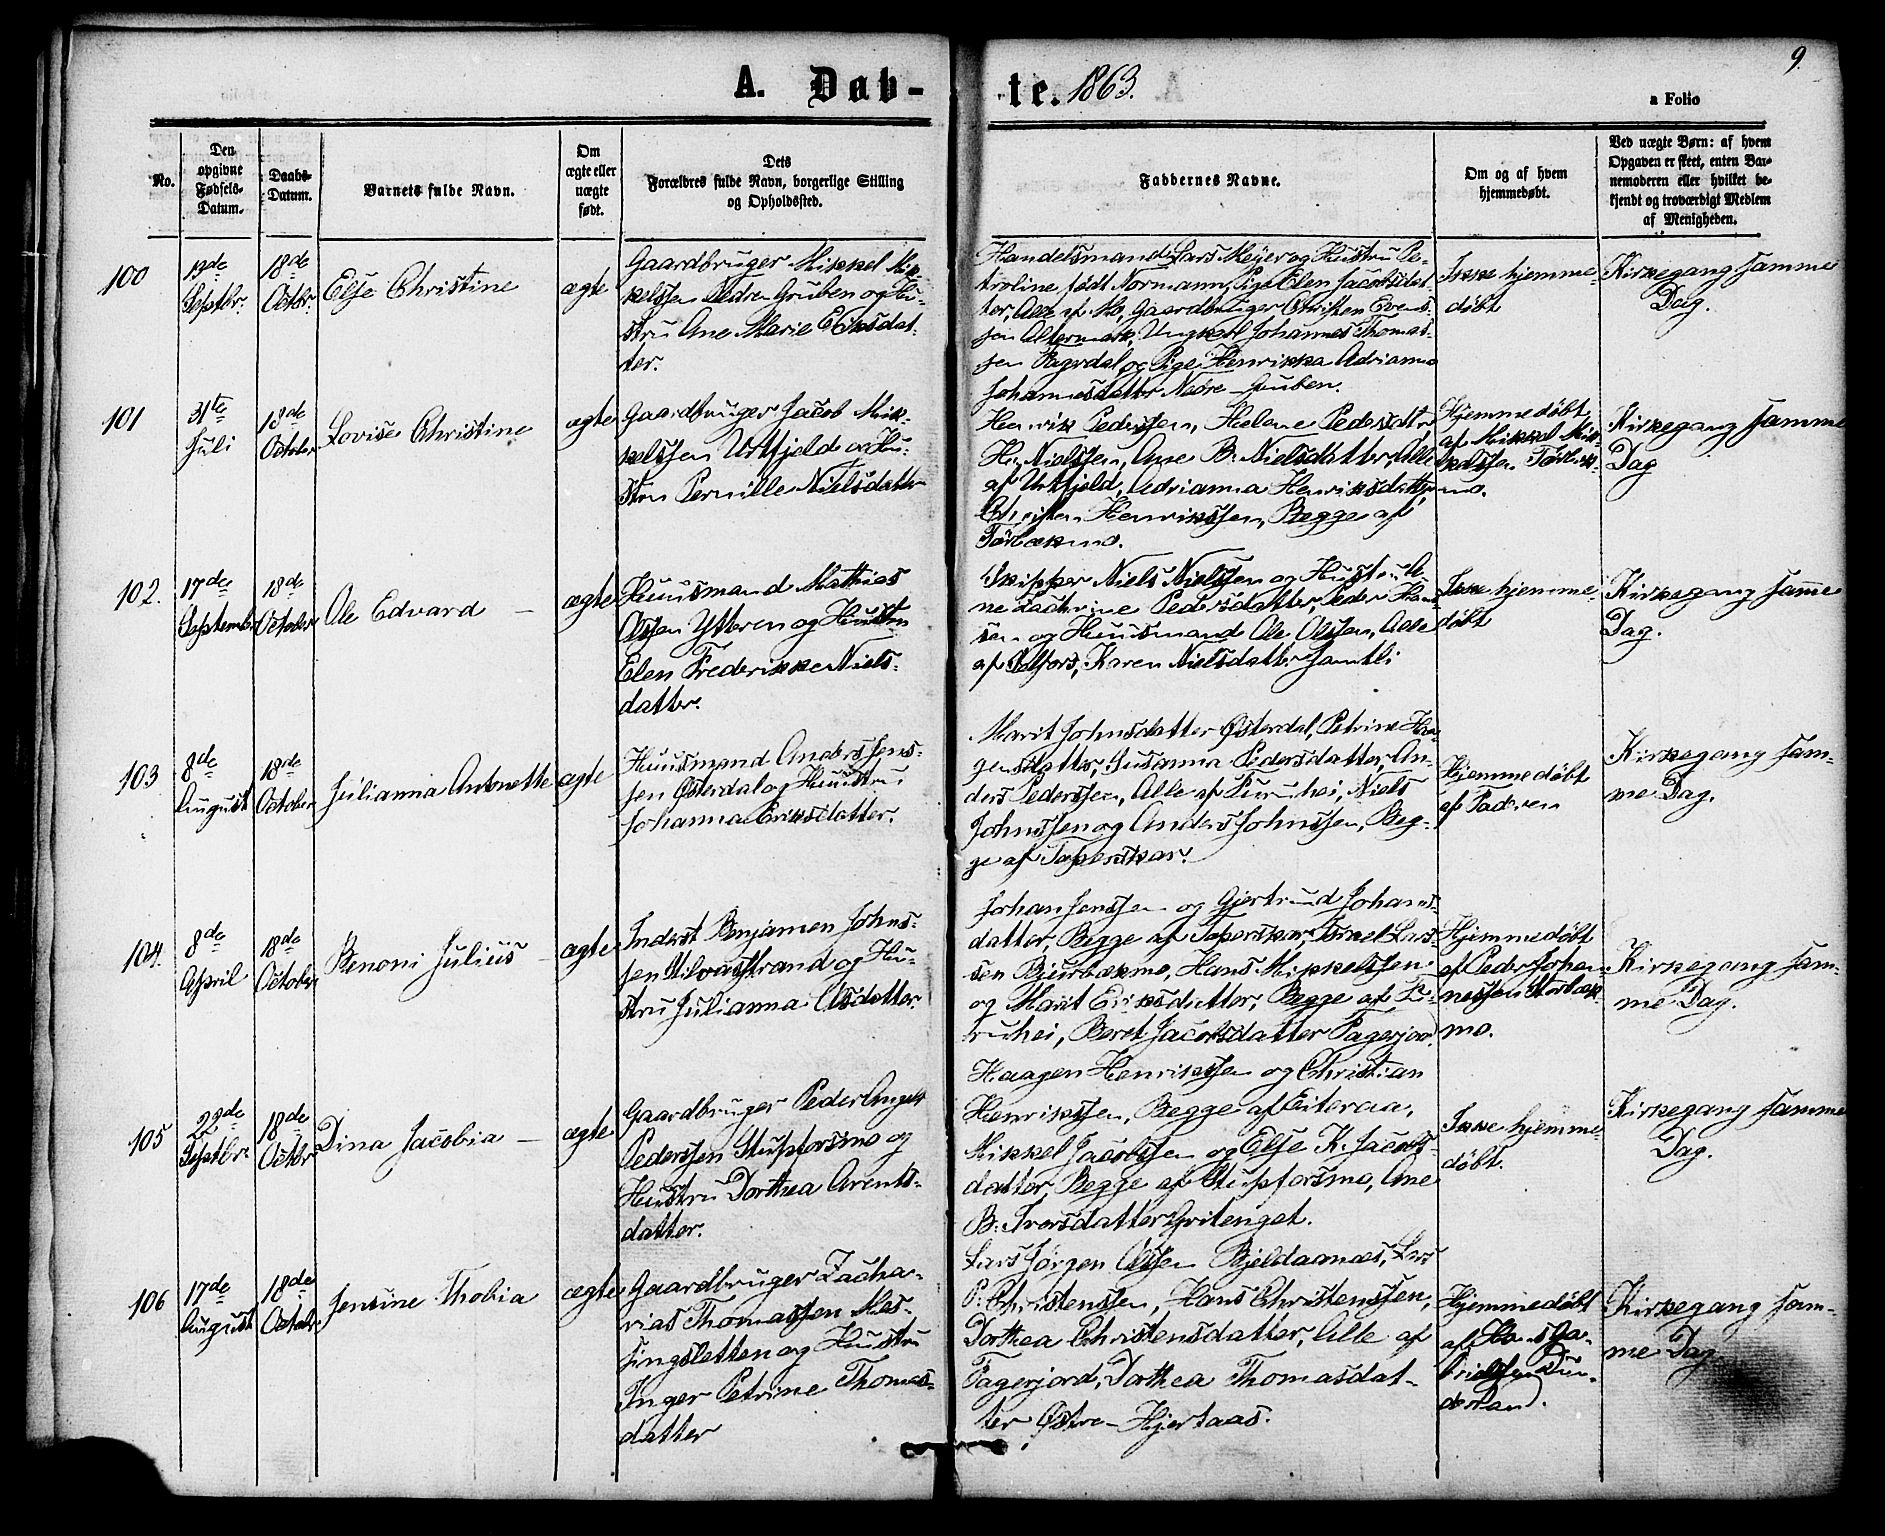 A. Døb-
te. 1863.
9.
a Folio
No.
Den
opgivne
Fødsels-
Datum.
Daabs-
Datum.
Barnets fulde Navn.
Om
ægte eller
uægte
født.
Dets
Forældres fulde Navn, borgerlige Stilling
og Opholdssted.
Faddernes Navne.
Om og af hvem
hjemmedøbt.
Ved uægte Børn: af hvem
Opgaven er skeet, enten Bar-
nemoderen eller hvilket be-
kjendt og troværdigt Medlem
af Menigheden.
100
Septbr.
18de
Octbr.
Else Christine
ægte
Gaardbruger Mikkel Mik-
kelssen Nedre Gruben og Hu-
stru Ane Marie Eriksdat-
ter.
Handelsmand Lars Meyer og Hustru Pe-
troline født Normann, Pige Elen Jacobsdat-
ter, Alle af Mo, Gaardbruger Christen Evens-
sen Altermark, Ungkarl Johannes Thomas-
sen og Pige Henrikka Adrianna
Johannesdatter Nedre-Gruben.
Ikke hjemme-
døbt
Kirkegang samme
Dag.
101
31te
Juli
18de
October
Lovise Christine
ægte
Gaardbruger Jacob Mik-
kelssen Urtfjeld og Hu-
stru Pernille Nielsdatter
Henrik Pederssen, Helene Pedersdatter,
H. Nielssen, Ane B. Nielsdatter, Alle
af Urtfjeld, Adrianna Henriksdatter,
Christen Henrikssen, Begge af
Tørbækmo.
Hjemmedøbt
af Mikkel Mik-
kelssen Tørbæk-
mo.
Kirkegang samme
Dag
102.
17de
Septembr
18de
October
Ole Edvard –
ægte
Huusmand Mathias
Olssen Ytteren og Hustru
Elen Frederikke Niels-
datter.
Skipper Niels Nielssen og Hustru A-
ne Cathrine Pedersdatter, Peder Han-
sen og Huusmand Ole Olssen, Alle
af Selfors, Karen Nielsdatter Jamtli
Ikke hjemme-
døbt
Kirkegang samme
Dag.
103
8de
August
18de
October
Julianna Antonette
ægte
Huusmand Anders Jens-
sen Østerdal og Huustru
Johanna Eriksdatter.
Marit Johnsdatter Østerdal, Petrine Haa-
gensdatter, Susanna Pedersdatter, An-
ders Pederssen, Alle af Furuhei, Niels
Johnssen og Anders Johnssen, Beg-
ge af Taperskar.
Hjemmedøbt
af Faderen
Kirkegang sam-
me Dag.
104.
8de
April
18de
October
Benoni Julius –
ægte
Inderst Benjamen Johns-
sen Stilvasstrand og Hu-
stru Julianna Olsdatter.
Johan Jenssen og Gjertrud Johans-
datter, Begge af Taperskar, Israel Lars-
sen Bjurbækmo, Hans Mikkelssen
og Marit Eriksdatter, Begge af Fu-
ruhei, Beret Jacobsdatter Fagerjord.
Hjemmedøbt
af Peder Johan-
nessen Storbæk-
mo.
Kirkegang sam-
me Dag.
105
22de
Septbr.
18de
Octbr
Dina Jacobia –
ægte
Gaardbruger Peder Angel
Pederssen Stupforsmo og
Hustru Dorthea Arents-
datter.
Haagen Henrikssen og Christian
Henrikssen, Begge af Eiteraa,
Mikkel Jacobssen og Else K. Jacobs-
datter, Begge af Stupforsmo, Ane
B. Iversdatter Gritenget.
Ikke hjemme-
døbt.
Kirkegang samme
Dag.
106
17de
August
18de
Octobr
Jensine Thobia
ægte
Gaardbruger Zacha-
rias Thomassen Mes-
singsletten og Hustru
Inger Petrine Thomas-
datter
Lars Jørgen Olssen Bjeldaanæs, Lars
P. Christenssen, Hans Christenssen,
Dorthea Christensdatter, Alle af
Fagerjord, Dorthea Thomasdat-
ter Østre-Hjertaas.
Hjemmedøbt
af Hans Ga-
brielssen Dun-
derland.
Kirkegang sam-
me Dag